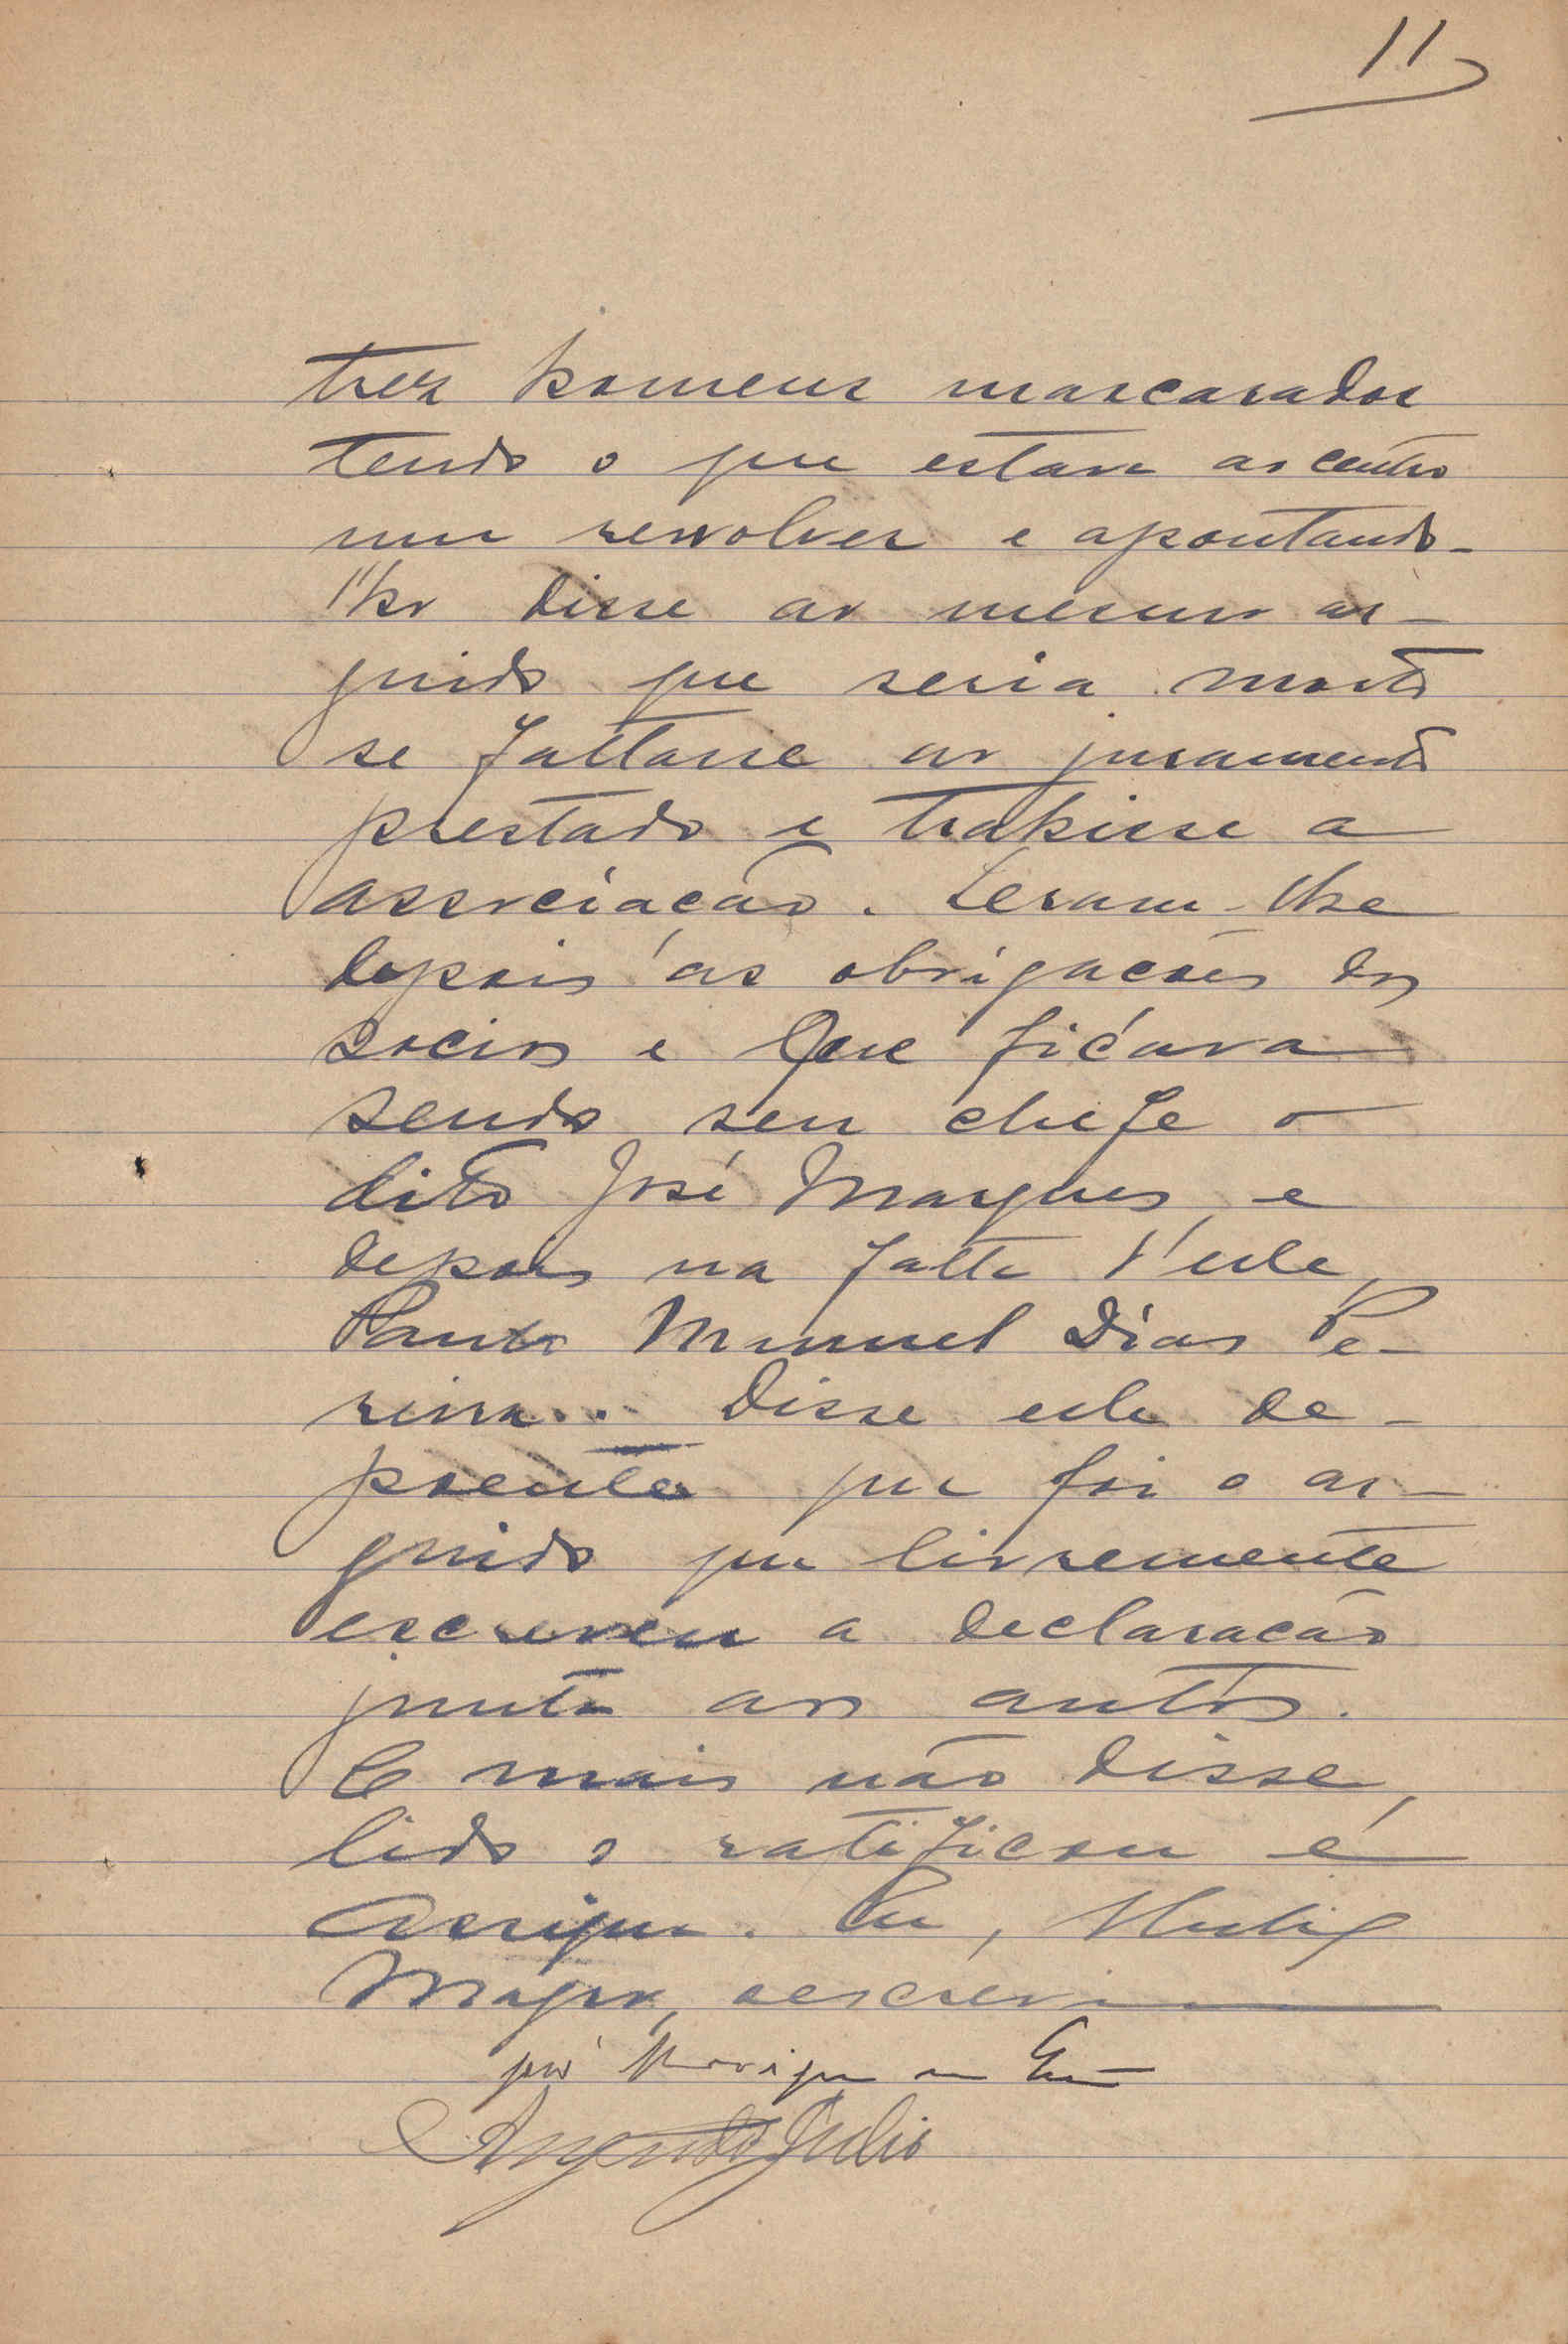 11
trez homens mascarados
tendo o que estava ao centro
um rewolver e apontando-
lh'o disse ao mesmo ar-
guido que seria morto
se faltasse ao juramento
prestado e trahisse a
associação. Leram-lhe
depois as obrigações dos
socios e que ficava
sendo seu chefe o
dito José Marques, e
depois na falta d'este,
Manuel Dias Pe-
reira. Disse este de-
poente que foi o ar-
guido que livremente
escreveu a declaração
junta aos autos.
E mais não disse,
lido o ratificou e
assigna. Eu,
o escrevi
Augusto Julio